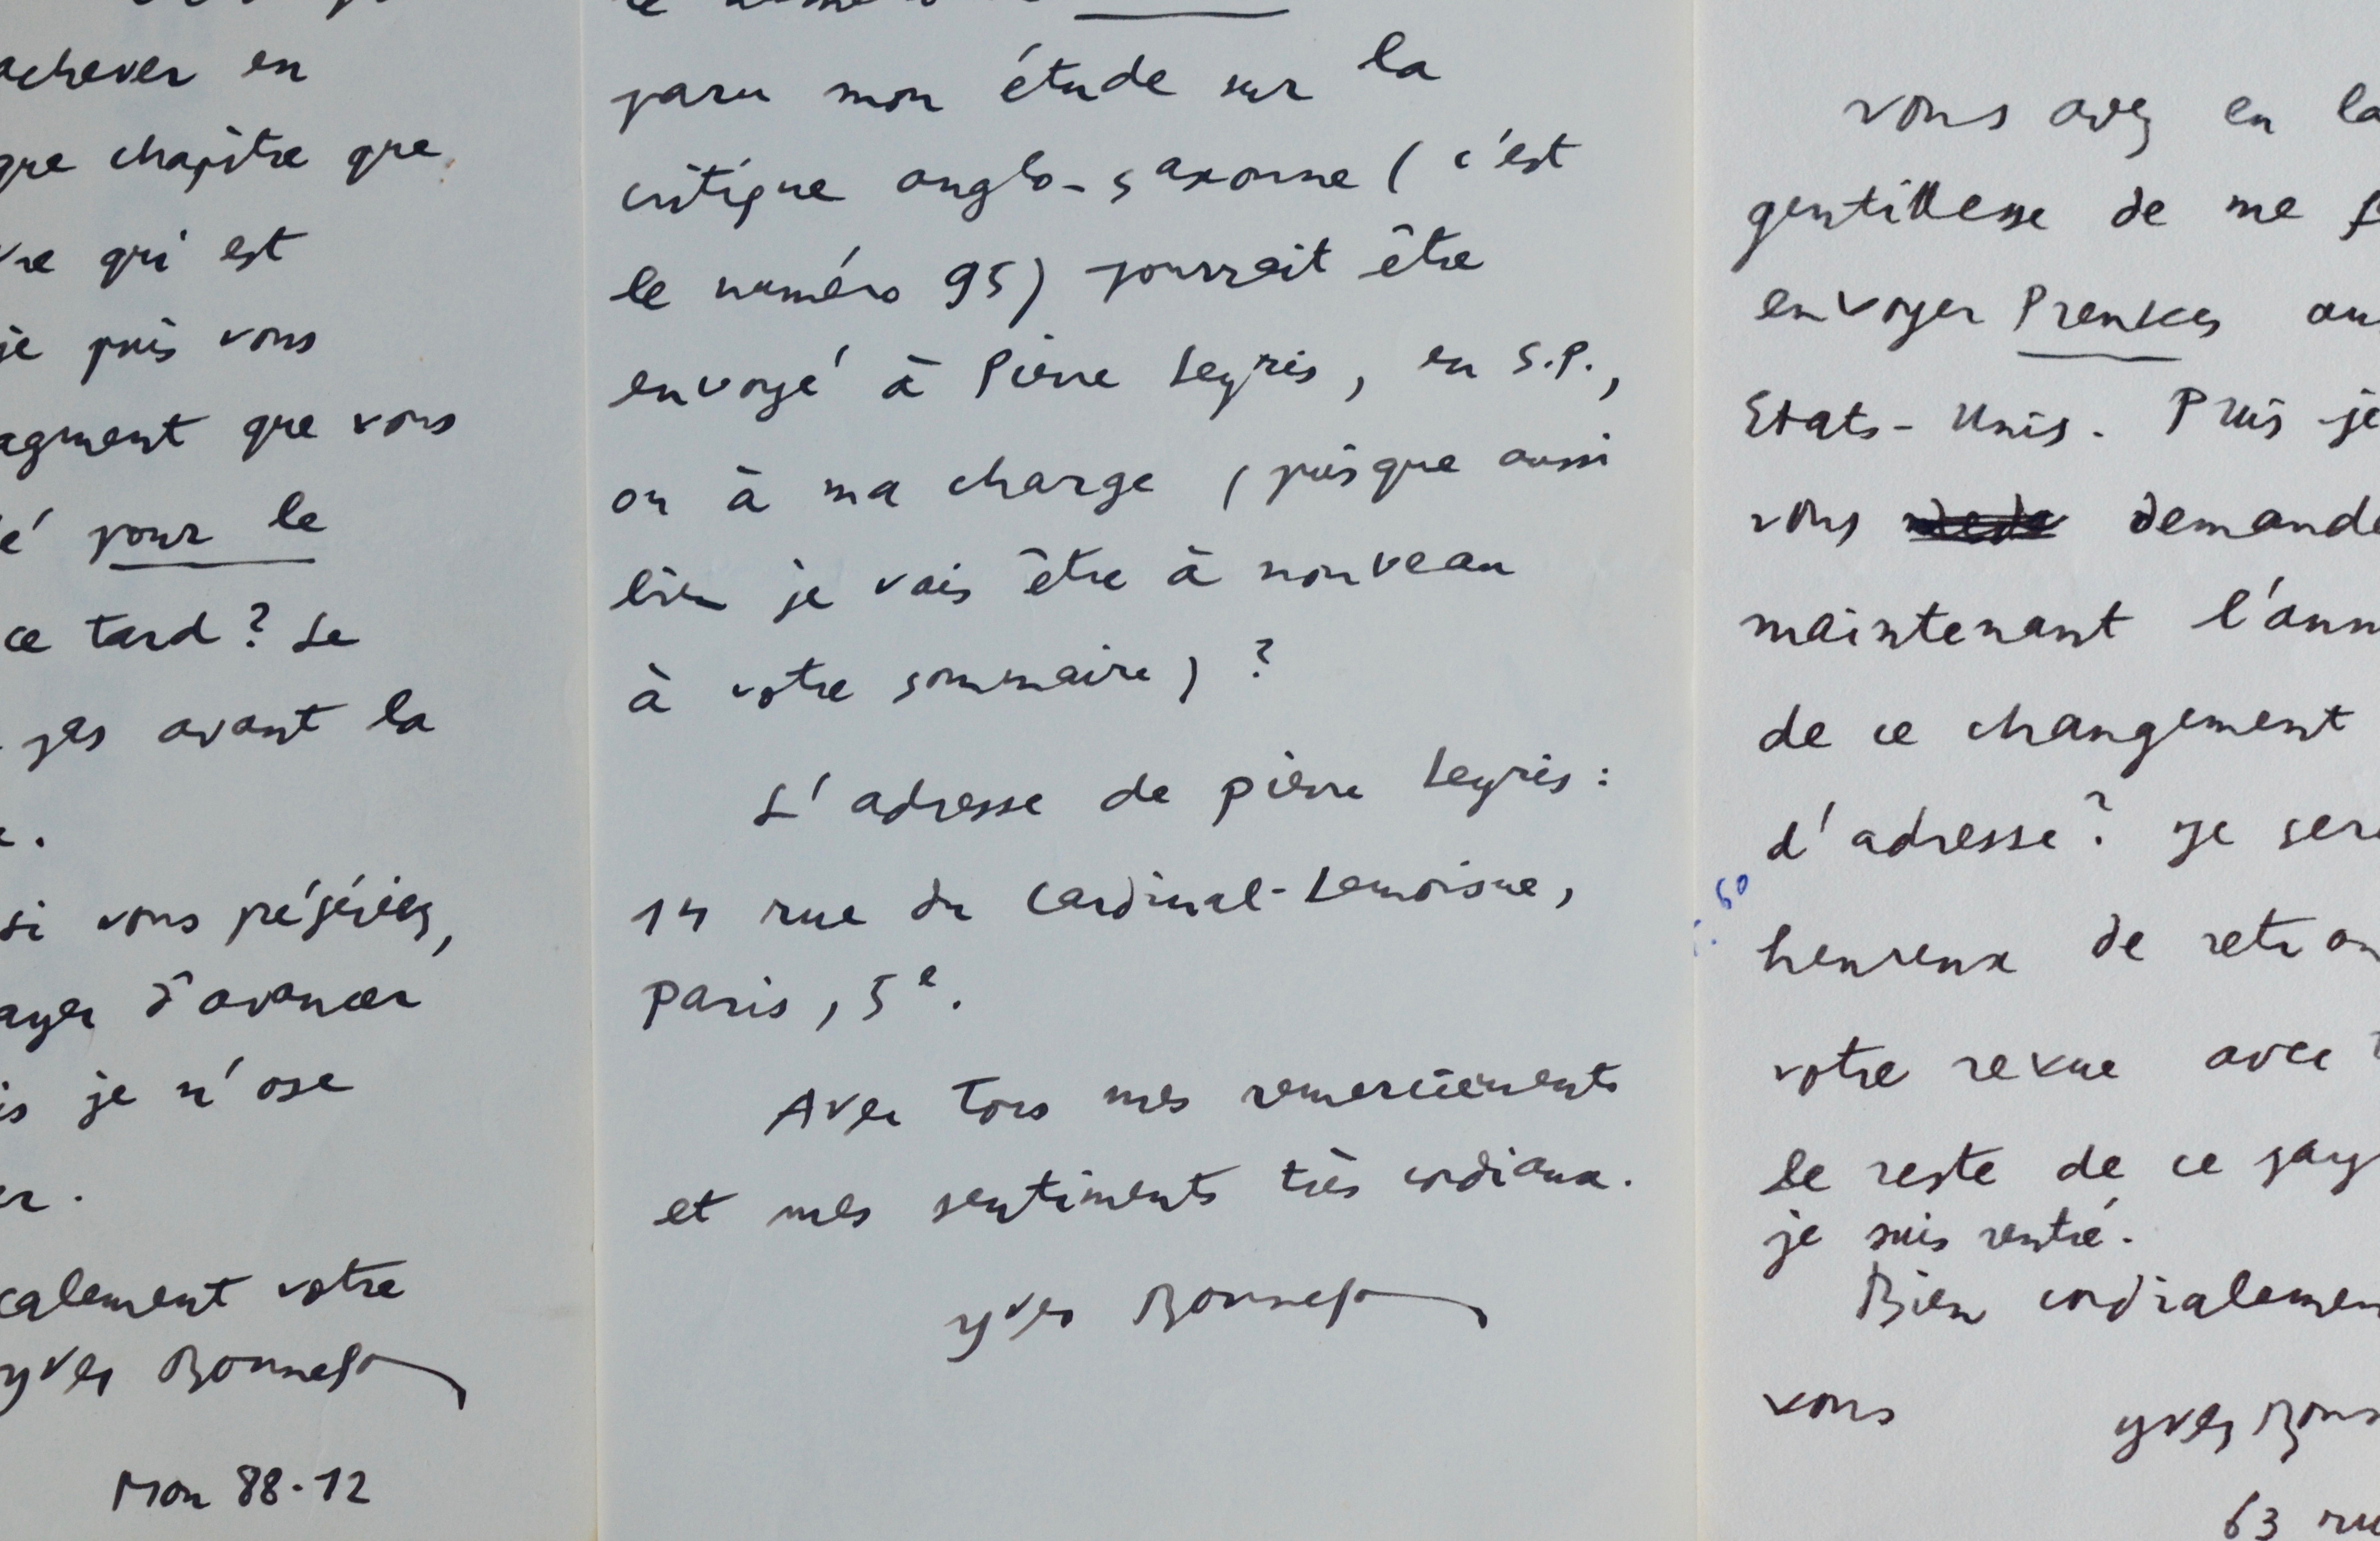 achever en
que chapître que
qui est
je puis vous
agment que vous
é pour le
ce tard ? Le
pas avant la
si vous préfériez,
ayer d'avancer
is je n'ose
er.
calement votre
Yves Bonnefoy
Mon 88-12
paru mon étude sur la
critique anglo-saxonne ( c'est
le numéro 95 ) pourrait être
envoyé à Pierre Leyris, en S.P.,
ou à ma charge ( puisque aussi
bien je vais être à nouveau
à votre sommaire ) ?
L'adresse de Pierre Leyris :
14 rue du Cardinal-Lemoisne,
Paris, 5e.
Avec tous mes remerciements
et mes sentiments très cordiaux.
Yves Bonnefoy
vous avez eu la
gentillesse de me f
envoyer Preuves au
Etats-Unis. Puis-je
vous demande
maintenant l'ann
de ce changement
d'adresse ? Je sera
60
heureux de retrou
votre revue avec t
le reste de ce pay
je suis rentré.
Bien cordialemen
vous Yves Bonn
63 ru